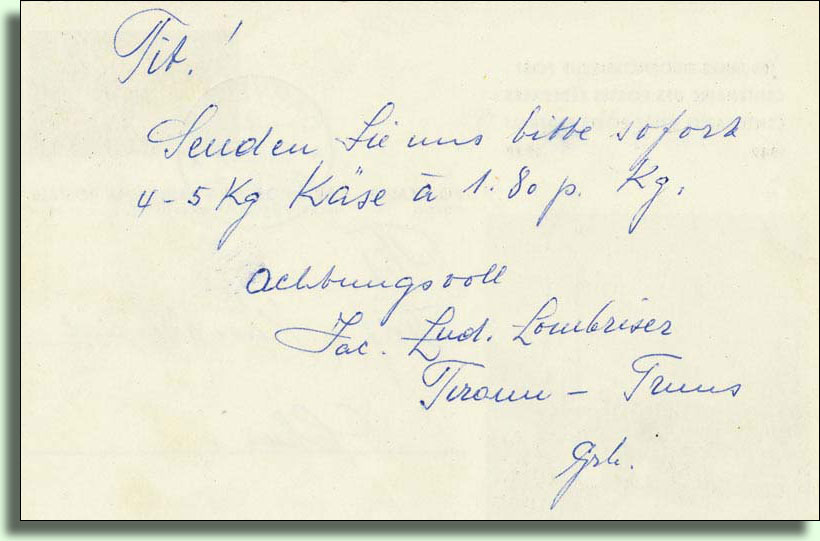 Tit.!
Senden Sie uns bitte sofort
4-5 Kg Käse à 1.80 p. Kg.
Achtungsvoll
Jac. Lud. Lombriser
Tiraun - Truns
Grb.